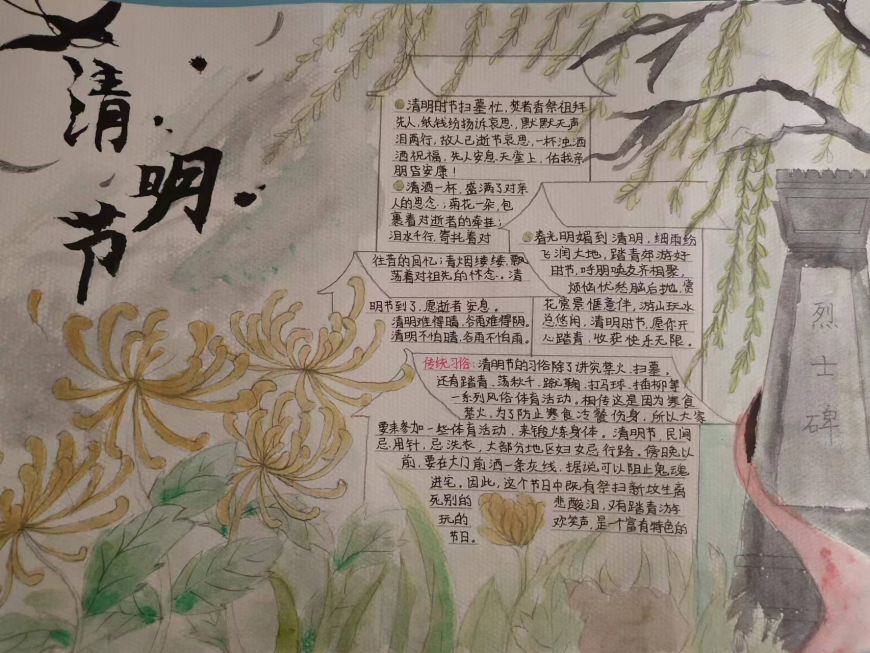 清明节
清明时节扫墓忙,焚香祭祖拜
先人,纸钱纷扬诉哀思,默默无声
泪两行,故人已逝节哀思,一杯浊酒
洒祝福,先人安息天堂上,佑我亲
朋皆安康!
清酒一杯,盛满了对亲
人的思念;菊花一朵,包
裹着对逝者的牵挂;
泪水千行,寄托着对
往昔的回忆;青烟缕缕,飘
荡着对祖先的怀念。清
明节到了,愿逝者安息。
清明难得晴,谷雨难得阴。
清明不怕晴,谷雨不怕雨。
春光明媚到清明,细雨纷
飞润大地,踏青郊游好
时节,呼朋唤友齐相聚,
烦恼忧愁脑后抛,赏
花赏景惬意伴,游山玩水
总悠闲,清明时节,愿你开
心踏青,收获快乐无限。
传统习俗:清明节的习俗除了讲究禁火、扫墓,
还有踏青、荡秋千、蹴鞠、打马球、插柳等
一系列风俗体育活动。相传这是因为寒食
禁火,为了防止寒食冷餐伤身,所以大家
要来参加一些体育活动,来锻炼身体。清明节,民间
忌用针,忌洗衣,大部分地区妇女忌行路。傍晚以
前,要在大门前洒一条灰线,据说可以阻止鬼魂
进宅。因此,这个节日中既有祭扫新坟生离
死别的悲酸泪,又有踏青游
玩的欢笑声,是一个富有特色的
节日。
烈士碑